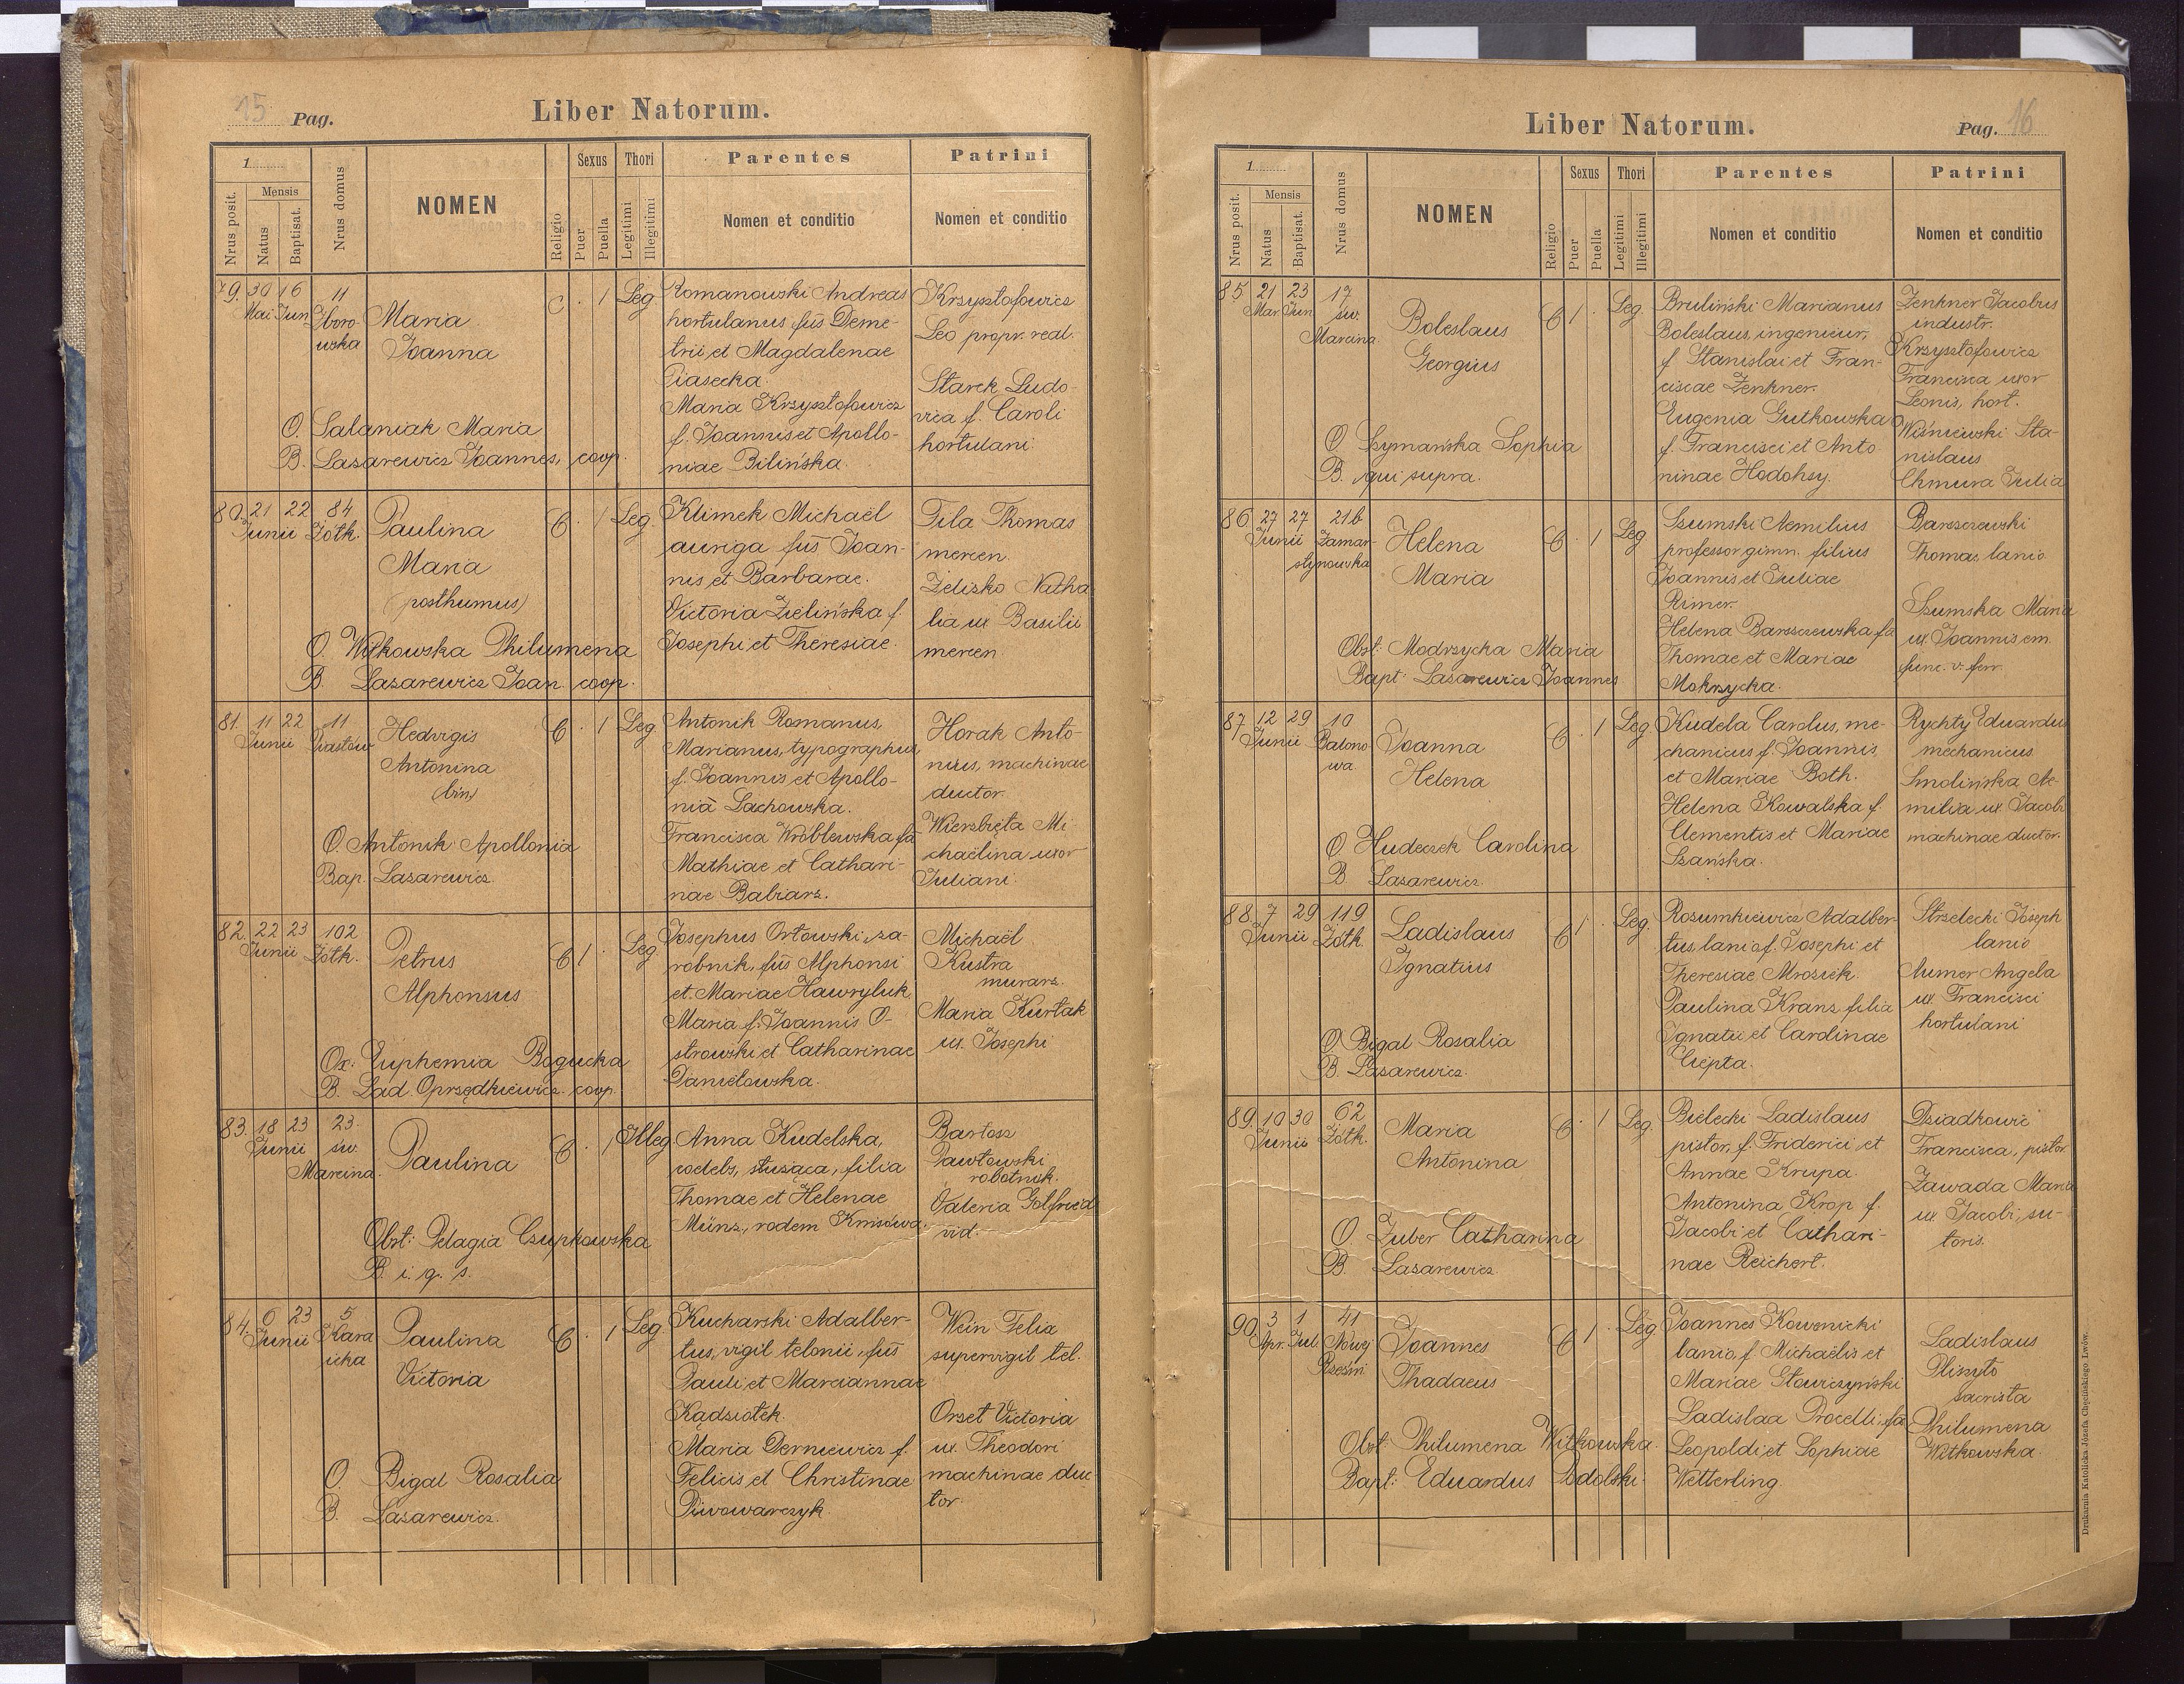 15 Pag.
Liber Natorum.
1
Nrus posit.
Mensis
Natus
Baptisat.
Nrus domus
NOMEN
Religio
Sexus
Puer
Puella
Thori
Legitimi
Illegitimi
Parentes
Nomen et conditio
Patrini
Nomen et conditio
79. 30 16 11
Mai Jun Zboro-
wska
Maria
Joanna
C · 1 Leg
Romanowski Andreas
hortulanus füs Deme-
trii et Magdalenae
Piasecka.
Maria Krzysztofowicz
f. Joannis et Apollo-
niae Bilińska.
Krzysztofowicz
Leo propr. real.
Starck Ludo-
vica f. Caroli
hortulani.
O. Salaniak Maria
B. Lazarewicz Joannes, coop.
80. 21 22 84
Junii Żółk.
Paulina
Maria
(posthumus)
C · 1 Leg.
Klimek Michaël
auriga füs Joan-
nis et Barbarae.
Victoria Zielińska f.
Josephi et Theresiae.
Pila Thomas
mercen.
Zelisko Natha-
lia ux Basilii
mercen
O. Witkowska Philumena
B. Lazarewicz Joan. coop.
81. 11 22 11
Junii Piastów
Hedvigis
Antonina
(bin)
C · 1 Leg.
Antonik Romanus,
Marianus, typographus,
f. Joannis et Apollo-
nia Lachowska.
Francisca Wróblewska fa
Mathiae et Cathari-
nae Babiarz.
Horak Anto-
nius, machinae
ductor.
Wierzbięta Mi
chaëlina uxor
Juliani.
O. Antonik Apollonia
Bap. Lazarewicz.
82. 22 23 102
Junii Żółk.
Petrus
Alphonsus
C 1 · Leg.
Josephus Orłowski, za-
robnik, füs Alphonsi
et Mariae Hawryluk
Maria f. Joannis O-
strowski et Catharinae
Daniełowska.
Michaël
Kustra
murarz.
Maria Kurtak
ux. Josephi
Ox: Euphemia Bogucka
B. Lad. Oprzędkiewicz coop.
83. 18 23 23.
Junii św.
Marcina.
Paulina
C · 1 Illeg.
Anna Kudelska,
coelebs, służąca, filia
Thomae et Helenae
Münz, rodem
Bartosz
Pawłowski
robotnik.
Valeria Golfried
vid.
Obst: Pelagia Czupkowska
B. i. q. s.
84. 6 23 5
Junii Kara
icka
Paulina
Victoria
C · 1 Leg.
Kucharski Adalber-
tus, vigil telonii, füs
Pauli et Marciannae
Kądziołek.
Maria Derniewicz f.
Felicis et Christinae
Piwowarczyk.
Wein Felia
supervigil tel.
Orzet Victoria
ux. Theodori
machinae duc-
tor.
O. Bigal Rosalia
B. Lazarewicz.
Liber Natorum.
Pag. 16
1
Nrus posit.
Mensis
Natus
Baptisat.
Nrus domus
NOMEN
Religio
Sexus
Puer
Puella
Thori
Legitimi
Illegitimi
Parentes
Nomen et conditio
Patrini
Nomen et conditio
85. 21 23 17
Mar. Jun św.
Marcina
Boleslaus
Georgius
C 1 · Leg.
Bruliński Marianus
Boleslaus, ingenieur,
f. Stanislai et Fran-
ciscae Zenkner.
Eugenia Gutkowska
f. Francisci et Anto
ninae Hodohsy.
Zenkner Jacobus
industr.
Krzysztofowicz
Francisca uxor
Leonis, hort.
Wiśniewski Sta-
nislaus
Chmura Julia
O. Szymańska Sophia
B. qui supra.
86. 27 27 21b
Junii Zamar-
stynowska
Helena
Maria
C · 1 Leg
Szumski Aemilius
professor gimn. filius
Joannis et Juliae
Rimer.
Helena Barszczewska fa
Thomae et Mariae
Mokrzycka.
Barszczewski
Thomas lanio
Szumska Maria
ux. Joannis em.
func. v. ferr.
Obst: Modrzycka Maria
Bapt: Lazarewicz Joannes
87. 12 29 10
Junii Balono
wa.
Joanna
Helena
C · 1 Leg
Kudela Carolus, me-
chanicus f. Joannis,
et Mariae Both.
Helena Kowalska f.
Clementis et Mariae
Szańska.
Rychty Eduardus
mechanicus
Smolińska Ae-
milia ux. Jacobi
machinae ductor.
O. Hudeczek Carolina
B. Lazarewicz.
88. 7 29 119
Junii Żółk.
Ladislaus
Ignatius
C 1 · Leg.
Rozumkiewicz Adalber-
tus, lanio f. Josephi et
Theresiae Mroziek.
Paulina Kranz filia
Ignatii et Carolinae
Ciepta.
Strzelecki Joseph
lanio
Aumer Angela
ux. Francisci
hortulani
O. Bigal Rosalia
B. Lazarewicz.
89. 10 30 62
Junii Żółk.
Maria
Antonina
C · 1 Leg.
Bielecki Ladislaus
pistor, f. Friderici et
Annae Krupa.
Antonina Krop f.
Jacobi et Cathari-
nae Reichert.
Dziadkowic
Francisca, pistor.
Zawada Maria
ux. Jacobi, su-
toris.
O. Zuber Catharina
B. Lazarewicz
90. 3 1 41
Apr. Jul. Nowej
Rzeźni
Joannes
Thadaeus
C 1 · Leg
Joannes Kowenicki
lanio, f. Michaëlis et
Mariae Słowczyński
Ladislaa Procelli, fa
Leopoldi et Sophiae
Wetterling.
Ladislaus
Plinzyto
sacrista
Philumena
Witkowska.
Obst: Philumena Witkowska.
Bapt: Eduardus Podolski.
Drukarnia Katolicka Józefa Chęcińskiego Lwów.